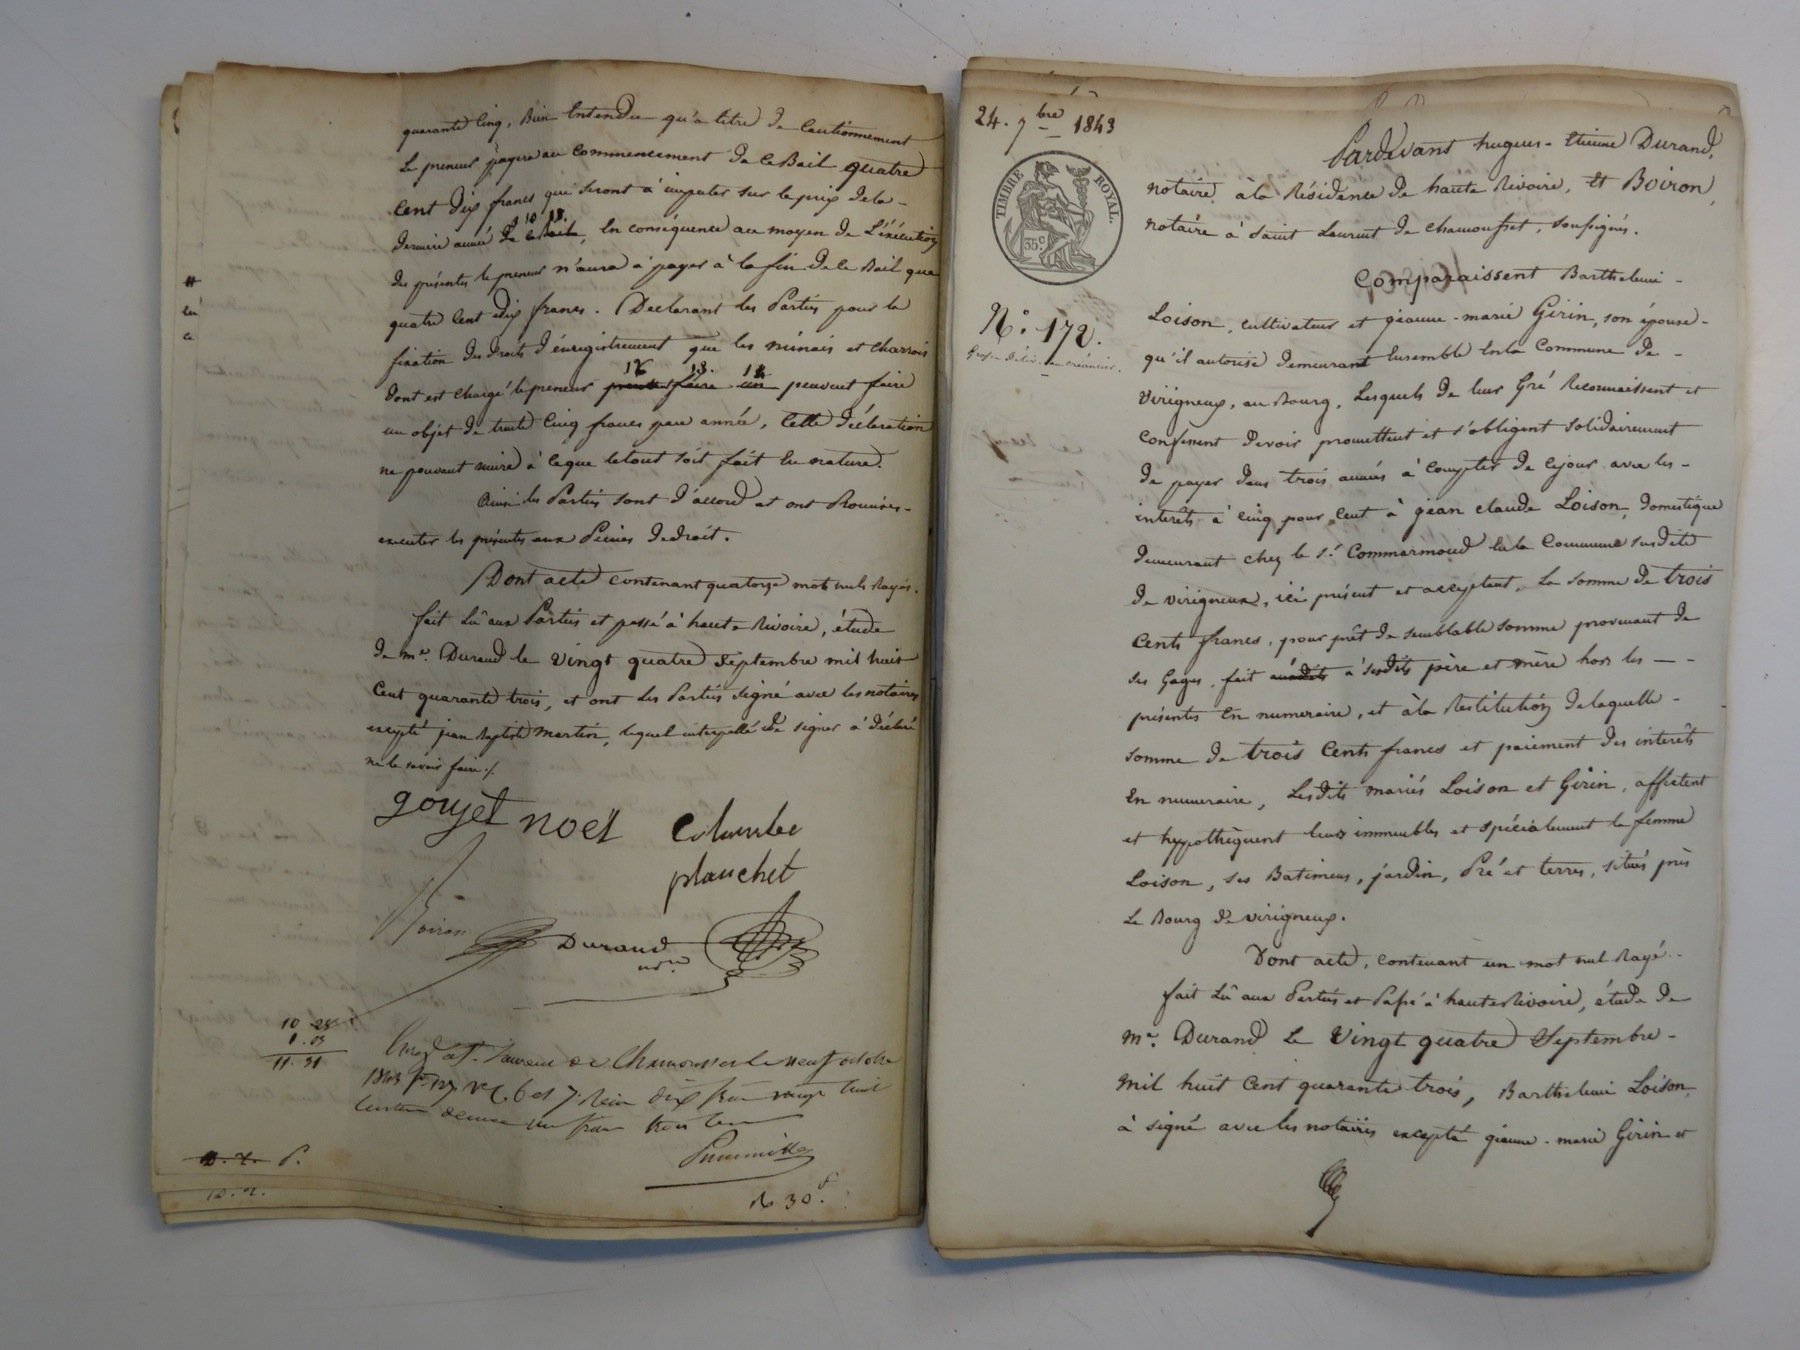 quarante Cinq, Bien Entendu qu'à titre de Cautionnement
Le preneur payera au Commencement de ce Bail quatre
Cent dix francs qui seront à imputer sur le prix de la -
dernière année de ce Bail, En conséquence au moyen de L'exécution
des présentes le preneur n'aura à payer à la fin de ce Bail que
quatre Cent dix francs. Déclarant les Parties pour la
fixation des droits d'énregistrement que les menais et charrois
dont est chargé le preneur peuvent faire
un objet de trente Cinq francs par année, Cette déclaration
ne pouvant nuire à ce que le tout soit fait En nature.
Ainsi les Parties sont d'accord et ont Promis -
executer les présentes aux Peines de droit.
Dont acte contenant quatorze mots nuls Rayés.
fait Lû aux Parties et passé à haute Rivoire, étude
de me. Durand le Vingt quatre Septembre mil huit
Cent quarante trois, et ont les Parties signé avec les notaires
excepté jean Baptiste Martin, lequel interpellé de signer à déclaré
ne le savoir faire ./.
goujet noël Colombe
planchet
Boiron Durand
nore
10 28
1 . 03
11 . 31
Enregt. à St. Laurent de Chamousset le neuf octobre
1843 fo. 127 Vo C. 6 et 7. Reçu dix francs vingt huit
centimes décime un franc trois cent
D. 2. P.
D. 2.
16 30f.
24. 7bre 1843
TIMBRE ROYAL.
35c.
No. 172.
Pardevant hugues - Etienne Durand,
notaire à la Résidence de haute Rivoire, Et Boiron,
notaire à Saint Laurent de chamousset, soussignés.
Comparaissent Barthelemi -
Loison, cultivateur et jeanne - marie Girin, son épouse -
qu'il autorise demeurant Ensemble En la Commune de -
Virigneux, au Bourg, Lesquels de leur Gré Reconnaissent et
Confessent devoir promettent et s'obligent solidairement
de payer dans trois années à Compter de ce jour avec les -
interêts à Cinq pour Cent à jean claude Loison, domestique
demeurant chez le sr. Commarmond En la Commune susdite
de virigneux, ici présent et acceptant, La somme de trois
Cents francs, pour prêt de semblable somme provenant de
ses Gages, fait ausdits à sesdits père et mère hors les - -
présentes En numeraire, et à la Restitution de laquelle -
somme de trois Cents francs et paiement des interêts
En numeraire, Lesdits mariés Loison et Girin, affectent
et hypothèquent leurs immeubles et spécialement la femme
Loison, ses Batimens, jardin, Pré et terres, situés près
Le Bourg de virigneux.
Dont acte, contenant un mot nul Rayé. -
fait Lû aux Parties et Passé à haute Rivoire, étude de
me. Durand Le Vingt quatre Septembre -
mil huit Cent quarante trois, Barthelemi Loison,
à signé avec les notaires excepté jeanne - marie Girin et